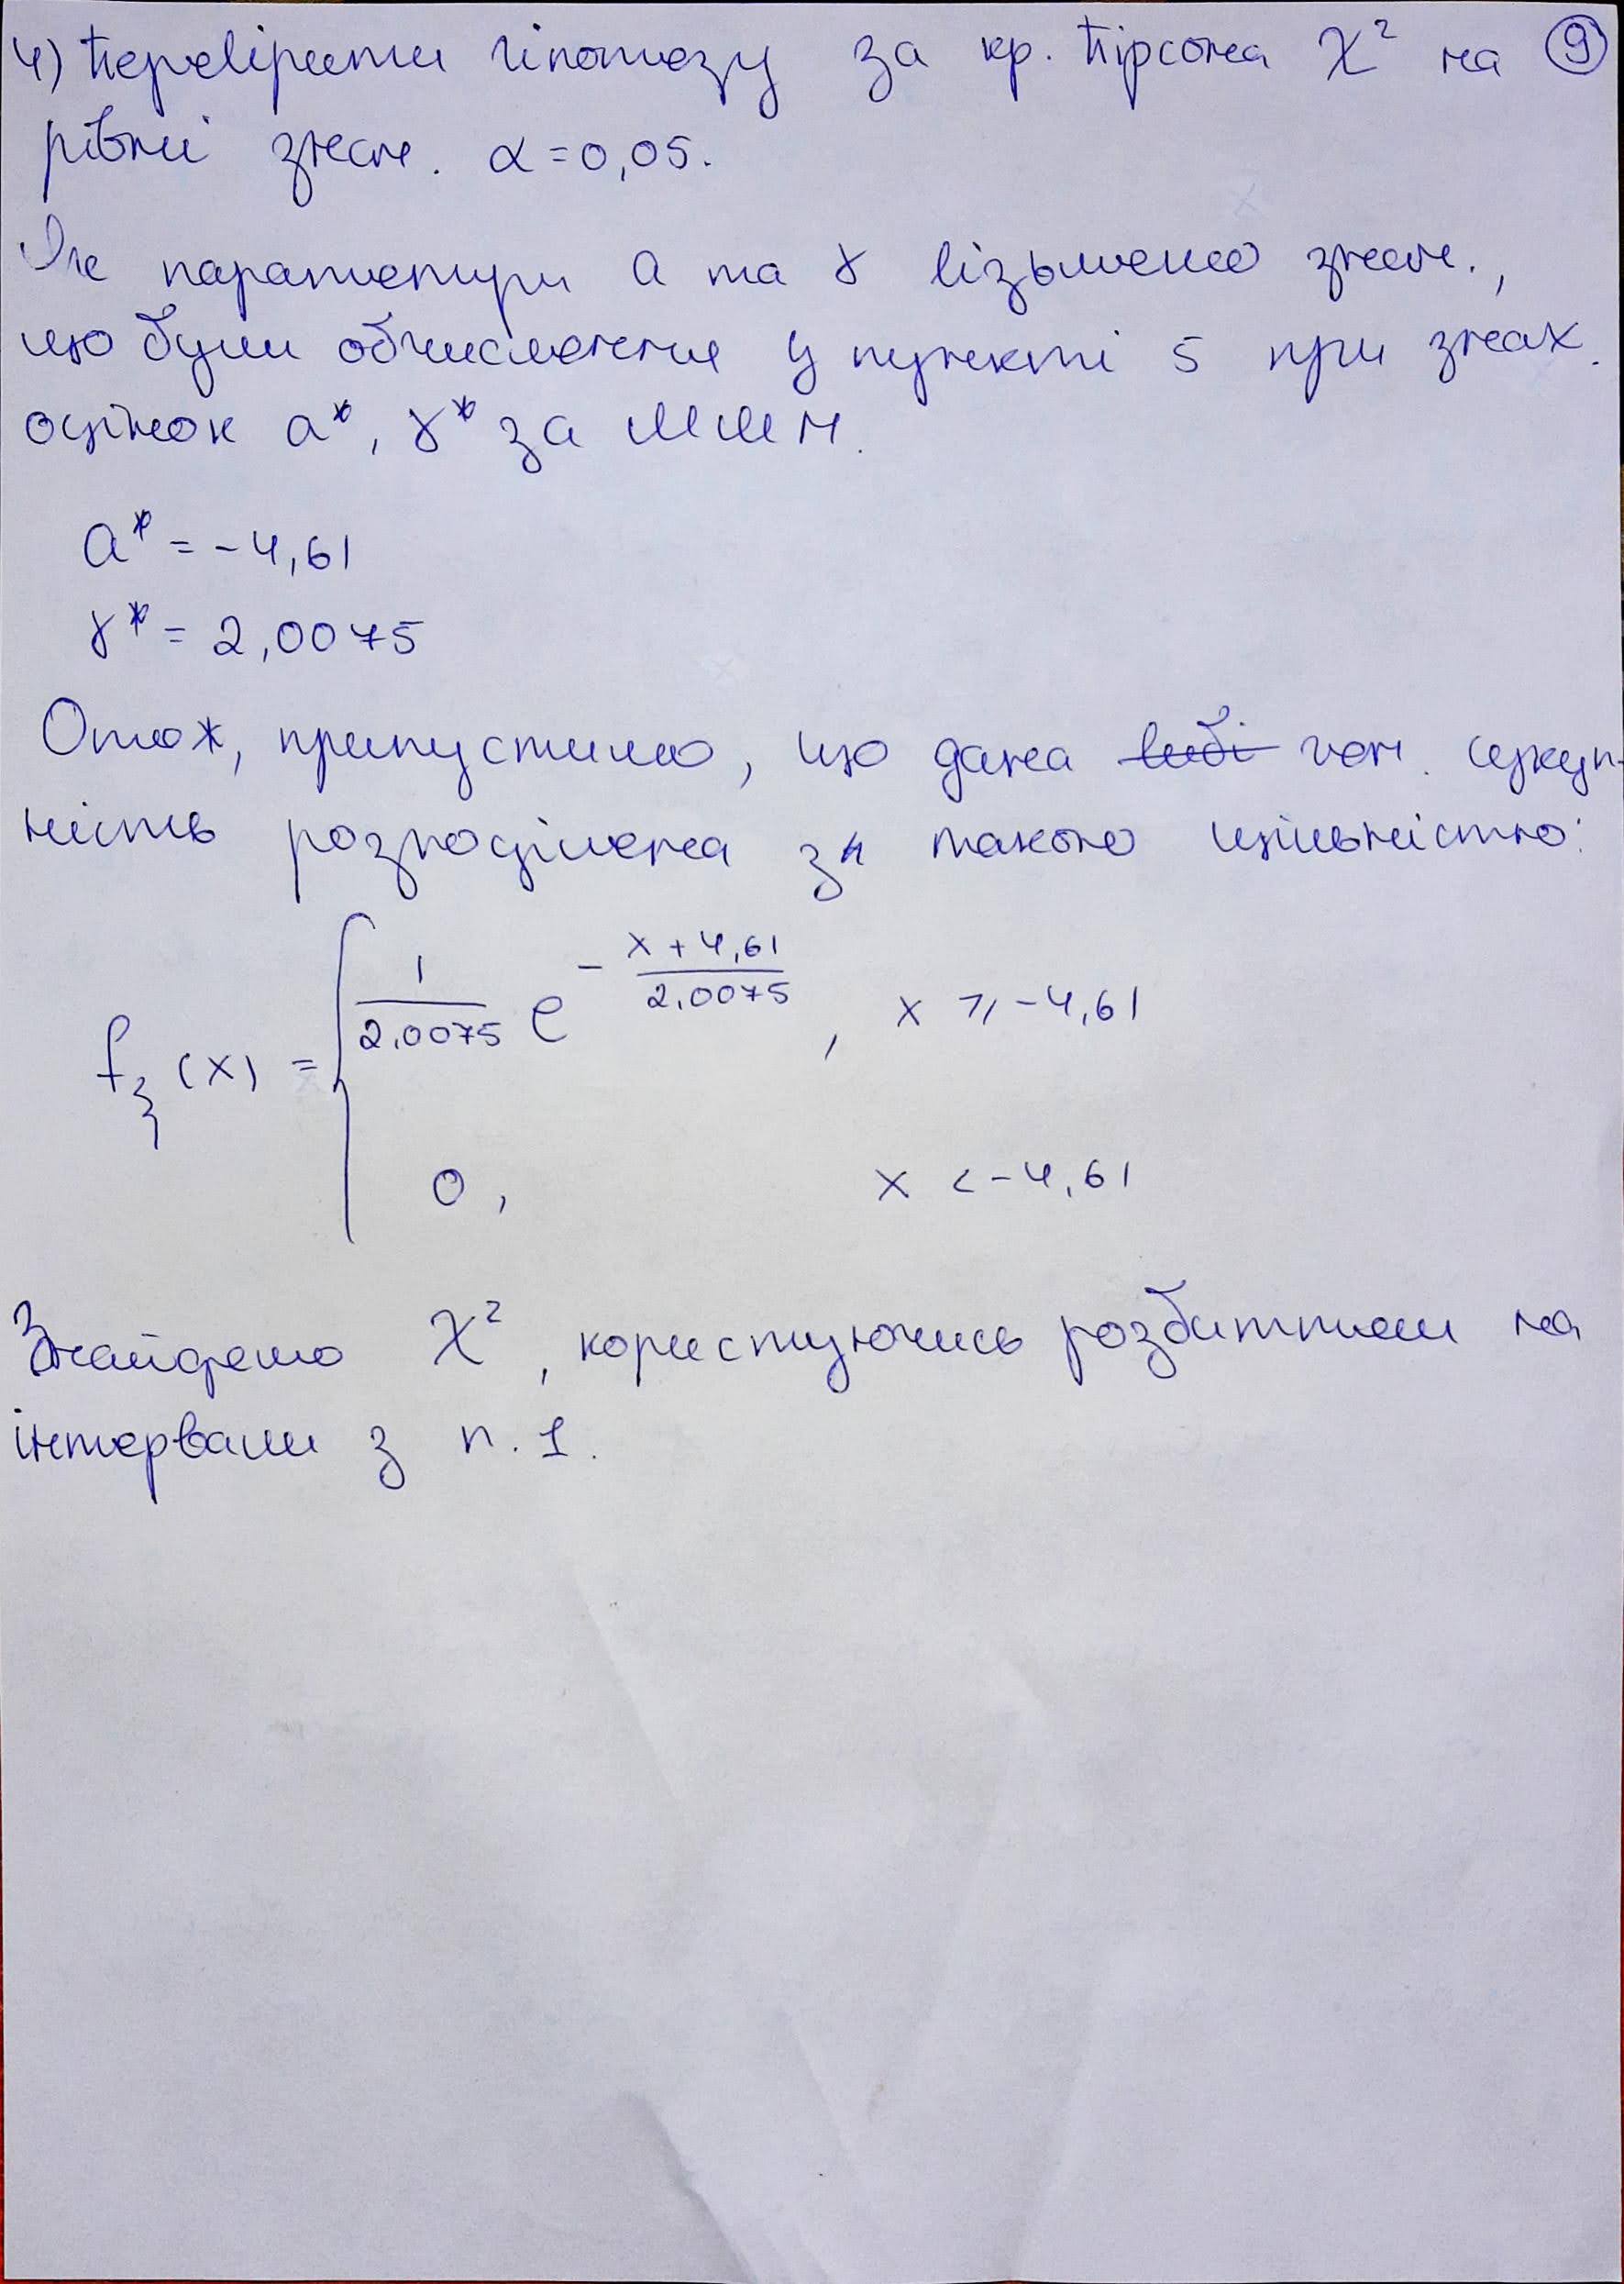 4) Перевірити гіпотезу за кр. Пірсона χ² на ⑨
рівні знач. α = 0,05.
Як параметри a та γ візьмемо знач.,
що були обчислення у пункті 5 при знах.
оцінок a*, γ* за ММП.
a* = -4,61
γ* = 2,0075
Отож, припустимо, що дана вибі ген. сукуп-
ність розподілена за такою щільністю:
f_ξ(x) = { 1/2.0075 e^(-(x + 4,61)/2.0075), x ⩾ -4,61
0, x < -4,61
Знайдемо χ², користуючись розбиттям на
інтервали з п. 1.